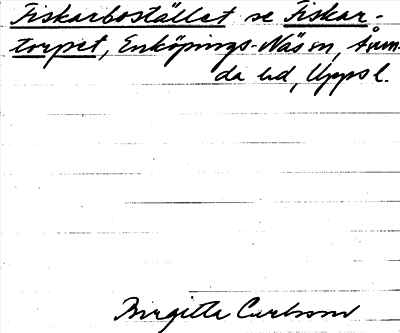 Fiskarbostället se Fiskar-
torpet, Enköpings-Näs sn, Åsun-
da hd, Uppsl.
Birgitta Carlsson